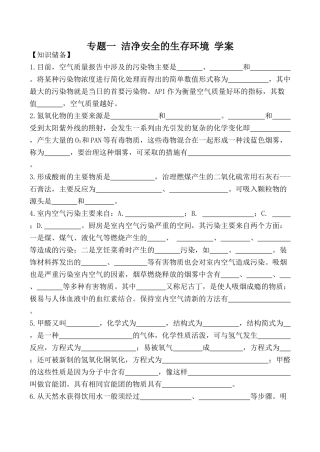 专题一 洁净安全的生存环境 学案
【知识储备】
1.目前，空气质量报告中涉及的污染物主要是________、________、________和________
__，将某种污染物浓度进行简化处理而得出的简单数值形式称为__________________，其中
最大的污染物就是当天的____________污染物。API作为衡量空气质量好坏的指标，其数
值________，空气质量越好。
2.氮氧化物的主要来源是________________和________________，它们和碳氢化合物
受到太阳紫外线的照射，会发生一系列由光引发的复杂的化学变化即________________，
产生大量的O₃和PAN等有毒物质，这些毒物混合在一起可形成一种浅蓝色烟雾，称为
____________________，要治理这种烟雾，可采取的措施有________________。
3.形成酸雨的主要物质是__________，治理燃煤产生的二氧化硫常用石灰石——
石膏法，主要反应为________________________________；可吸入颗粒物的
源头是________和________________。
4.室内空气污染主要来自：A.________；B.____________；C.____________
；D.____________。厨房污染是室内空气污染严重的空间，其污染主要来自两个方面：
一是煤、煤气、液化气等燃烧产生的________、________、________、________和________
__等造成的污染；二是烹饪菜肴时产生的________污染，如________、________等。装
饰材料挥发出的________、________、________等有害物质也会对室内空气造成污染。吸
烟是严重污染室内空气的因素，烟草燃烧释放的烟雾中主要含有________、________、
________等多种有害物质。其中________又称尼古丁，是一种有毒物质，________很容
易与人体血液中的血红素结合。保持室内空气清新的方法有____________。
5.甲醛又叫________，化学式为________，结构式为________，结构简式为________
__，是一种____________________的气体，化学性质活泼，可与氢气发生________
反应，方程式为________________________；又可被氧气氧化成________，方程式为
________________；还可被新制的氢氧化铜氧化，方程式为________________；甲醛
的这些性质是因为其分子中含有______________，像这样__________________
叫做官能团。具有相同官能团的物质具有______________________。
6.从天然水获得饮用水一般需要经过________、________、________等步骤。明